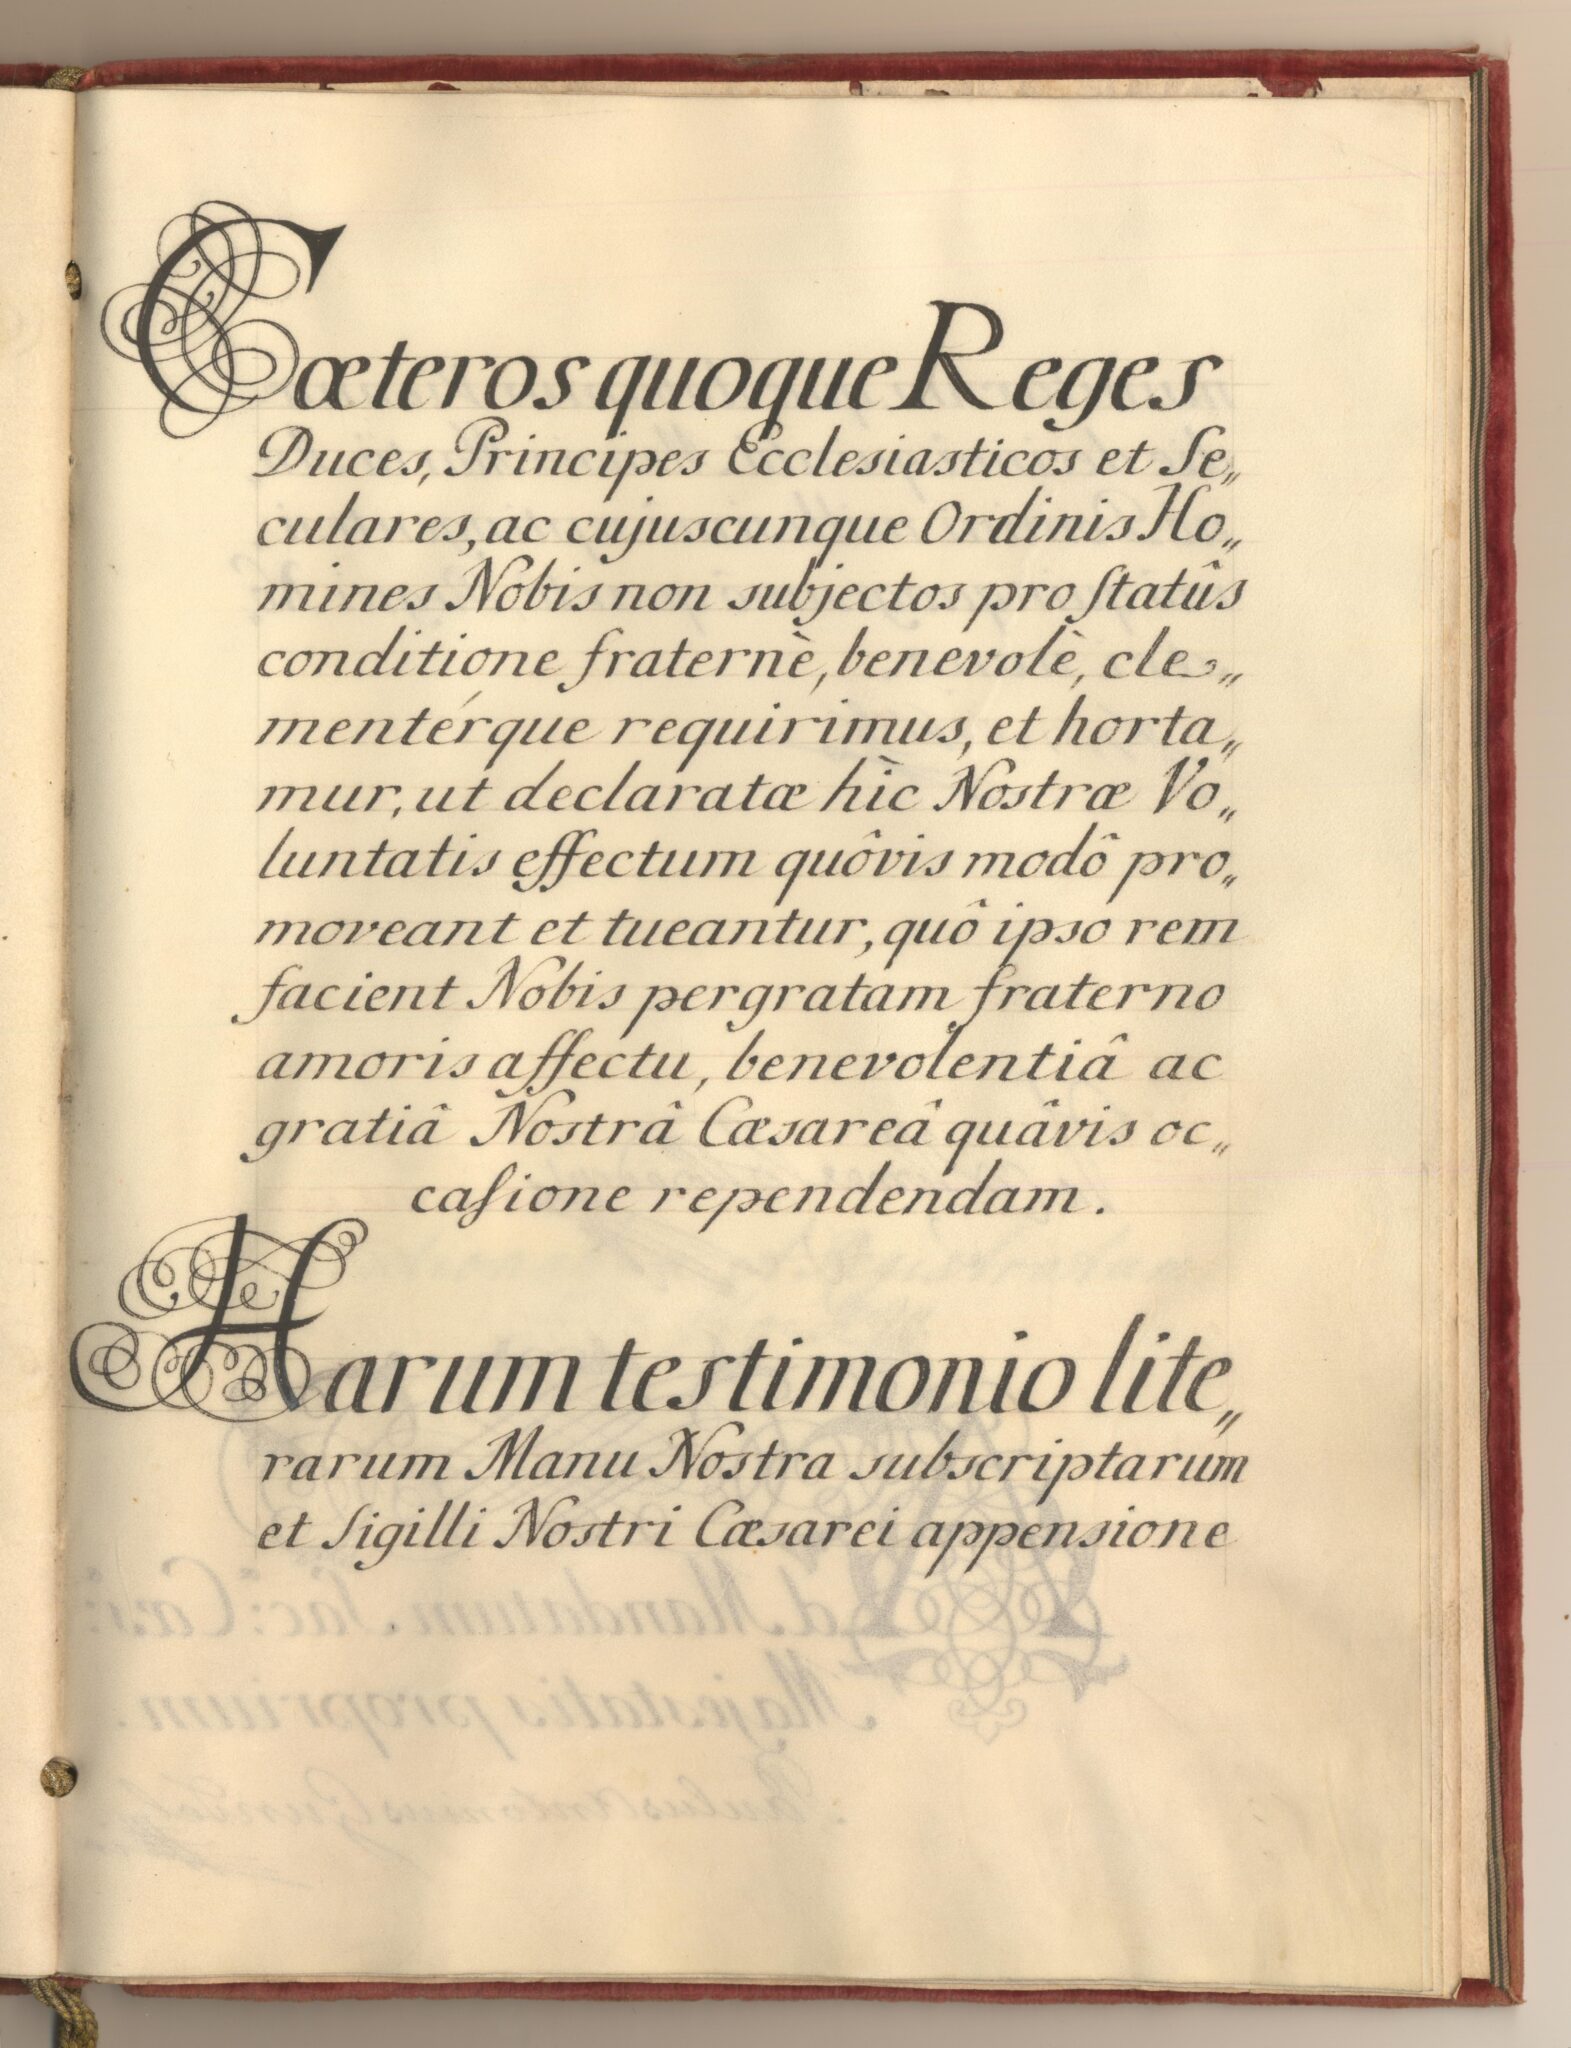 Cœteros quoque Reges
Duces, Principes Ecclesiasticos et Se„
culares, ac cujuscunque Ordinis Ho„
mines Nobis non subjectos pro ſtatûs
conditione fraternè, benevolè, cle„
mentérque requirimus, et horta„
mur, ut declaratæ hìc Nostræ Vo„
luntatis effectum quôvis modô pro„
moveant et tueantur, quô ipso rem
facient Nobis pergratam fraterno
amoris affectu, benevolentiâ ac
gratiâ Nostrâ Cæsareâ quâvis oc„
caſione rependendam.
Harum testimonio lite„
rarum Manu Nostra subscriptarum
et Sigilli Nostri Cæsarei appensione
Ad Mandatum Sac:
Majestatis proprium.